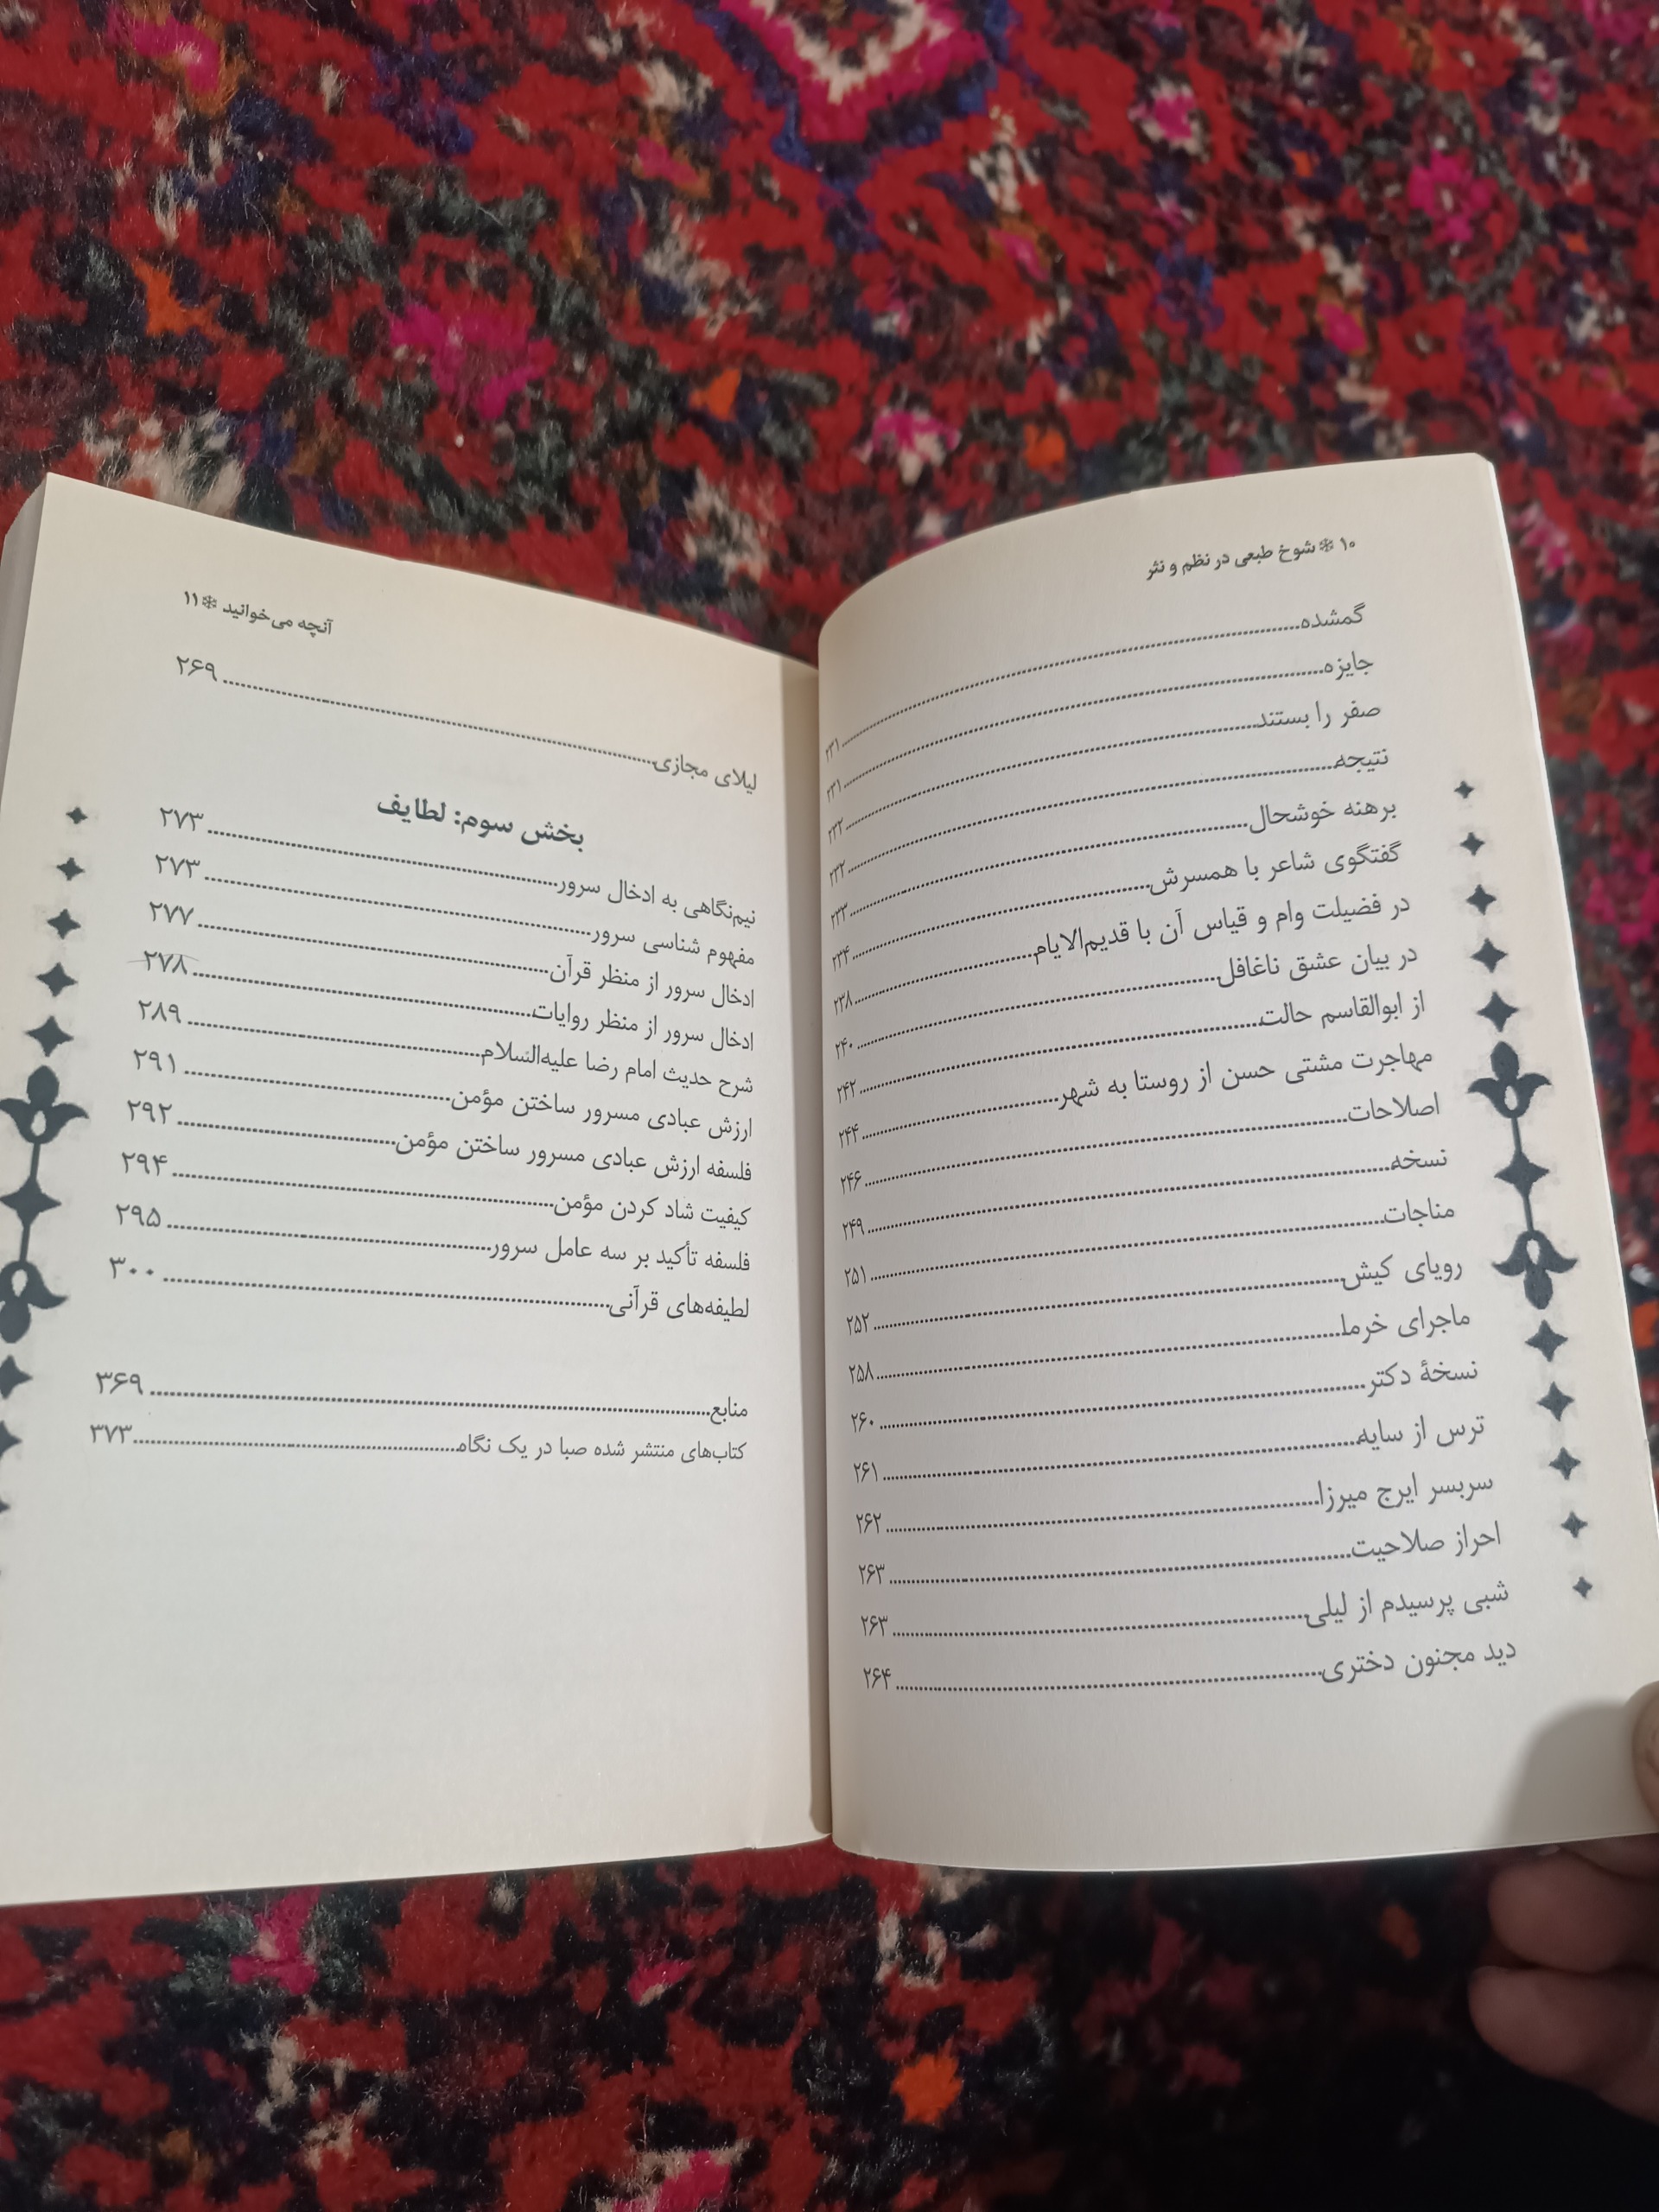 ۱۰ ❊ شوخ طبعی در نظم و نثر
گمشده ۲۳۱
جایزه ۲۳۱
صفر را بستند ۲۳۲
نتیجه ۲۳۲
برهنه خوشحال ۲۳۳
گفتگوی شاعر با همسرش ۲۳۴
در فضیلت وام و قیاس آن با قدیم‌الایام ۲۳۸
در بیان عشق ناغافل ۲۴۰
از ابوالقاسم حالت ۲۴۲
مهاجرت مشتی حسن از روستا به شهر ۲۴۴
اصلاحات ۲۴۶
نسخه ۲۴۹
مناجات ۲۵۱
رویای کیش ۲۵۲
ماجرای خرما ۲۵۸
نسخهٔ دکتر ۲۶۰
ترس از سایه ۲۶۱
سربسر ایرج میرزا ۲۶۲
احراز صلاحیت ۲۶۳
شبی پرسیدم از لیلی ۲۶۳
دید مجنون دختری ۲۶۴
آنچه می‌خوانید ❊ ۱۱
لیلای مجازی ۲۶۹
بخش سوم: لطایف
نیم‌نگاهی به ادخال سرور ۲۷۳
مفهوم شناسی سرور ۲۷۳
ادخال سرور از منظر قرآن ۲۷۷
ادخال سرور از منظر روایات ۲۷۸
شرح حدیث امام رضا علیه‌السلام ۲۸۹
ارزش عبادی مسرور ساختن مؤمن ۲۹۱
فلسفه ارزش عبادی مسرور ساختن مؤمن ۲۹۲
کیفیت شاد کردن مؤمن ۲۹۴
فلسفه تأکید بر سه عامل سرور ۲۹۵
لطیفه‌های قرآنی ۳۰۰
منابع ۳۶۹
کتاب‌های منتشر شده صبا در یک نگاه ۳۷۳